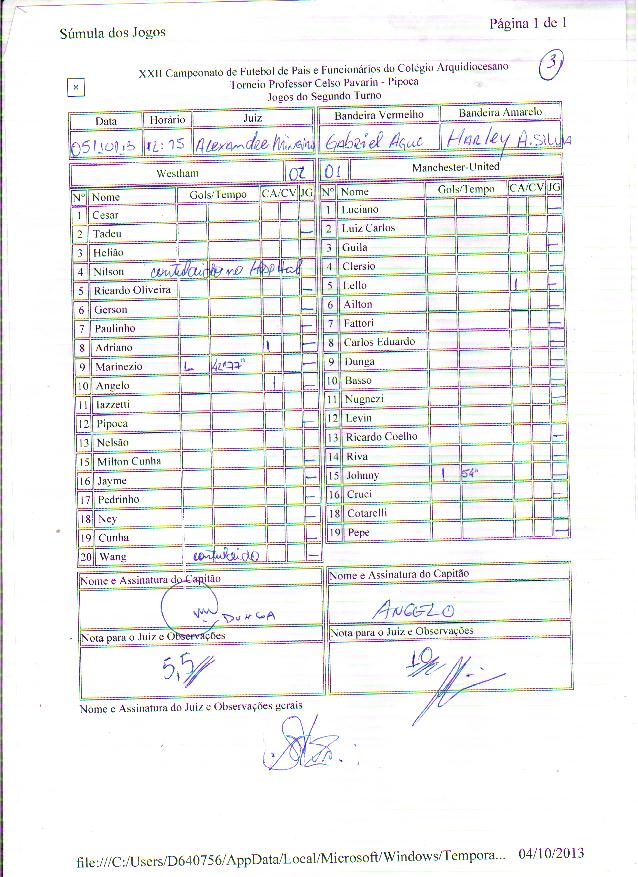 Súmula dos Jogos Página 1 de 1
3
XXII Campeonato de Futebol de Pais e Funcionários do Colégio Arquidiocesano
Torneio Professor Celso Pavarin - Pipoca
Jogos do Segundo Turno
Data Horário Juiz Bandeira Vermelho Bandeira Amarelo
Alexandre Gabriel HARLEY A. SILVA
Westham 02 01 Manchester-United
Nº Nome Gols/Tempo CA/CV JG Nº Nome Gols/Tempo CA/CV JG
1 Cesar 1 Luciano
2 Tadeu 2 Luiz Carlos
3 Helião 3 Guila
4 Nilson no 4 Clersio
5 Ricardo Oliveira 5 Lello 1
6 Gerson 6 Ailton
7 Paulinho 7 Fattori
8 Adriano 1 8 Carlos Eduardo
9 Marinezio 9 Dunga
10 Angelo 1 10 Basso
11 Iazzetti 11 Nugnezi
12 Pipoca 12 Levin
13 Nelsão 13 Ricardo Coelho
15 Milton Cunha 14 Riva
16 Jayme 15 Johnny 1 54"
17 Pedrinho 16 Cruci
18 Ney 18 Cotarelli
19 Cunha 19 Pepe
20 Wang contundido
Nome e Assinatura do Capitão Nome e Assinatura do Capitão
DUNGA ANGELO
Nota para o Juiz e Observações Nota para o Juiz e Observações
5,5 10
Nome e Assinatura do Juiz e Observações gerais
file:///C:/Users/D640756/AppData/Local/Microsoft/Windows/Tempora... 04/10/2013